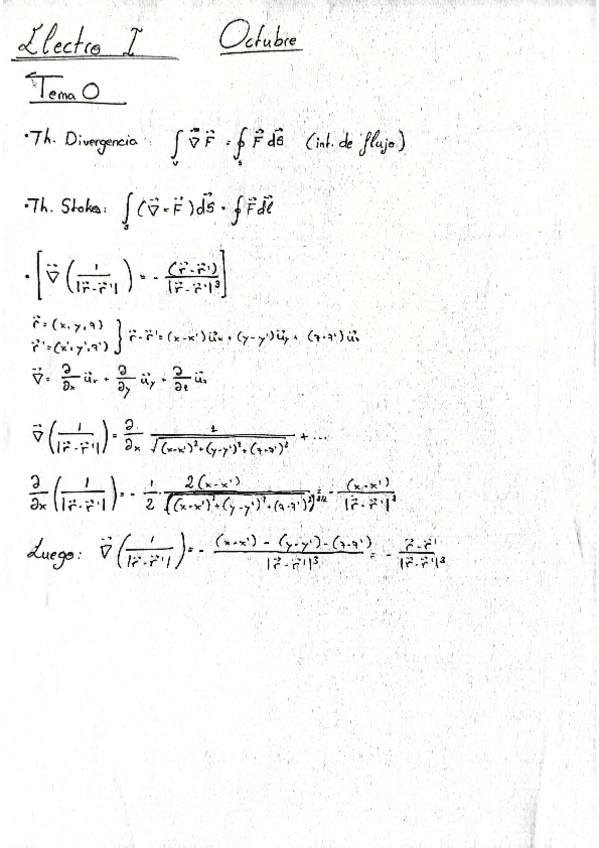 Electro I Octubre
Tema 0
· Th. Divergencia: ∫_V ∇⃗ F⃗ = ∮_S F⃗ dS⃗ (int. de flujo)
· Th. Stokes: ∫_S (∇⃗ × F⃗) dS⃗ = ∮ F⃗ dl⃗
· [∇⃗ (1/|r⃗-r⃗'|) = - (r⃗-r⃗')/|r⃗-r⃗'|³]
r⃗ = (x, y, z)
r⃗' = (x', y', z') } r⃗-r⃗' = (x-x') u⃗x + (y-y') u⃗y + (z-z') u⃗z
∇⃗ = ∂/∂x u⃗x + ∂/∂y u⃗y + ∂/∂z u⃗z
∇⃗ (1/|r⃗-r⃗'|) = ∂/∂x 1/√((x-x')²+(y-y')²+(z-z')²) + ...
∂/∂x (1/|r⃗-r⃗'|) = - 1/2 2(x-x')/((x-x')²+(y-y')²+(z-z')²)^3/2 = - (x-x')/|r⃗-r⃗'|³
Luego: ∇⃗ (1/|r⃗-r⃗'|) = - (x-x') - (y-y') - (z-z')/|r⃗-r⃗'|³ = - r⃗-r⃗'/|r⃗-r⃗'|³